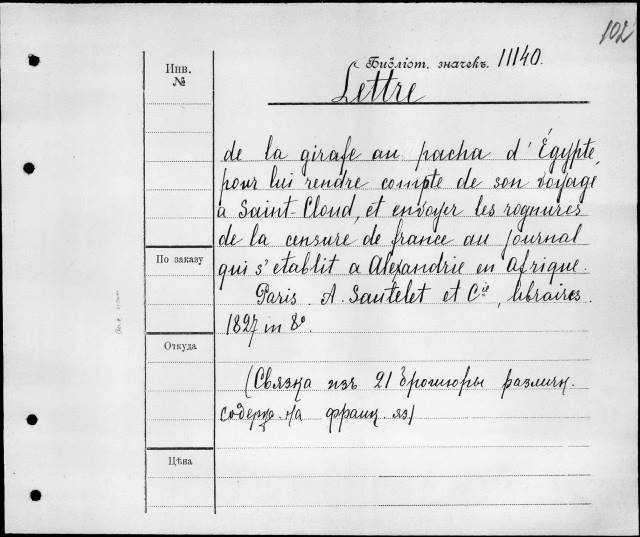 102
Инв.
№
Библіот. значекъ. 11140.
Lettre
de la girafe au pacha d'Égypte,
pour lui rendre compte de son voyage
à Saint-Cloud, et envoyer les rognures
de la censure de france au journal
qui s'etablit a Alexandrie en Afrique.
Paris. A. Sautelet et Cie, libraires.
1827 in 8o.
По заказу
Откуда
(Связка изъ 21 брошюры различн.
содерж. на франц. яз)
Цѣна